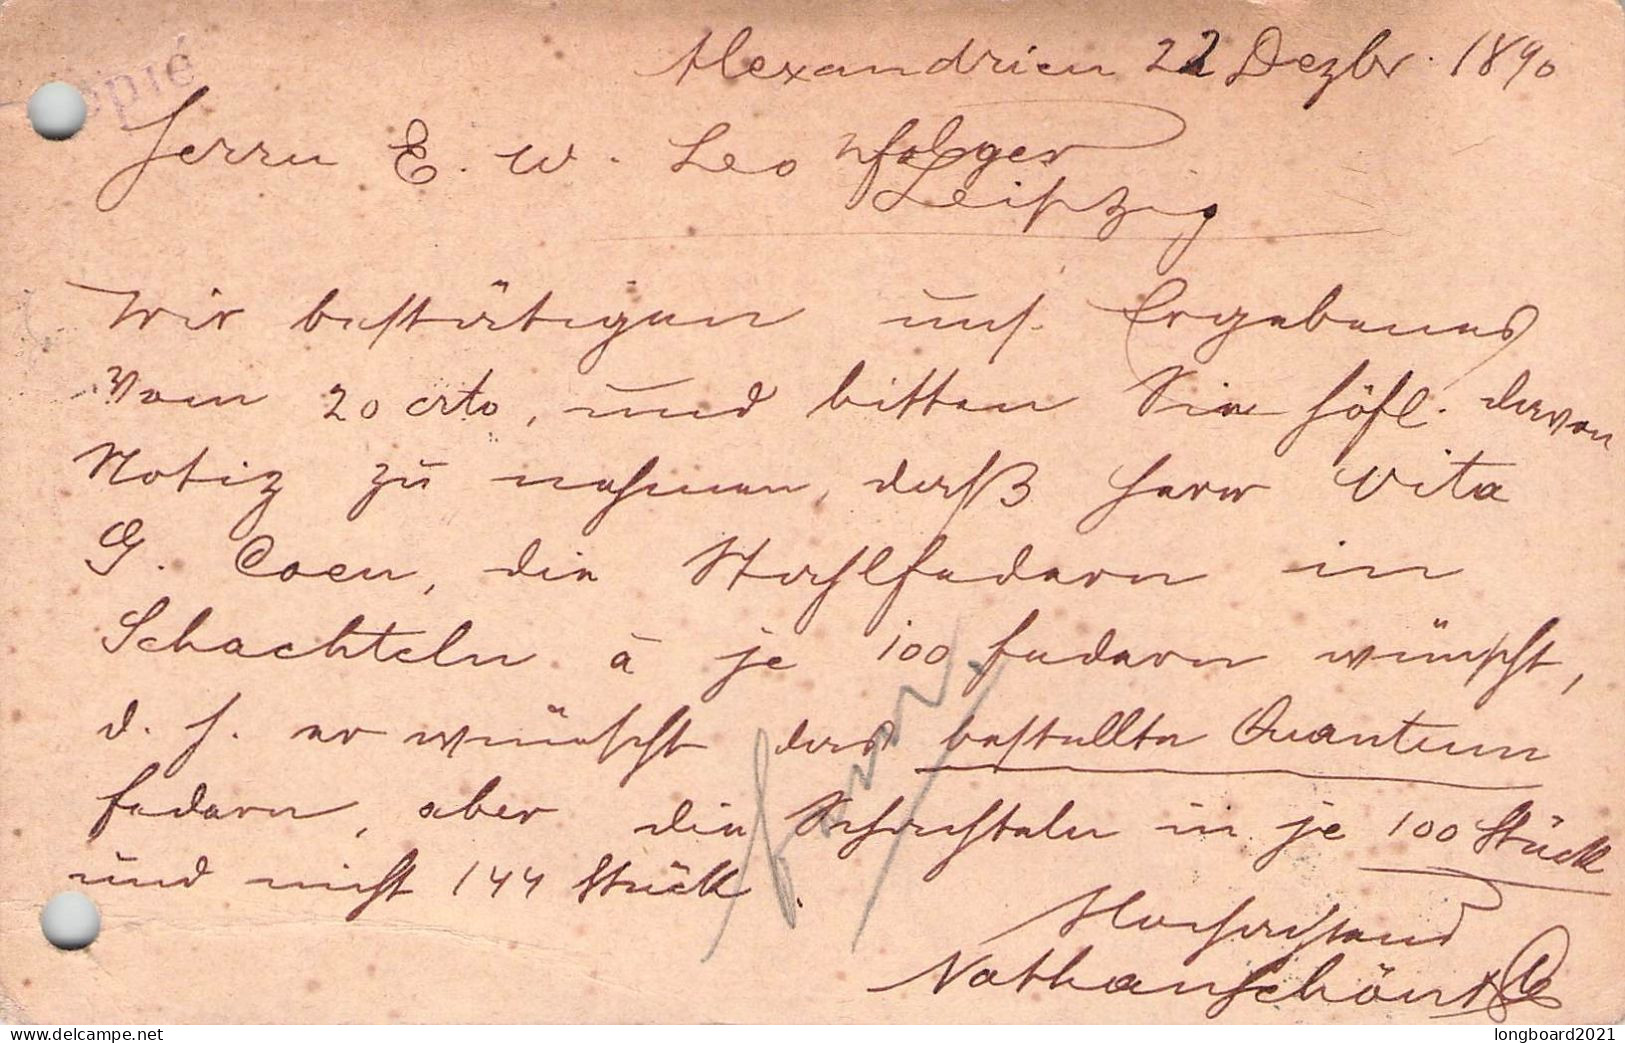 Alexandrien 22 Dezbr. 1890
Copié
Herrn E. W. Leo Nfolger
Leipzig
Wir bestätigen uns. Ergebenes
vom 20 crto, und bitten Sie höfl. davon
Notiz zu nehmen, daß Herr Vita
G. Coen, die Stahlfedern in
Schachteln à je 100 Federn wünscht,
d. h. er wünscht das bestellte Quantum
Federn, aber die Schachteln in je 100 Stück
und nicht 144 Stück.
Hochachtend
Nathanschön & Co
longboard2021